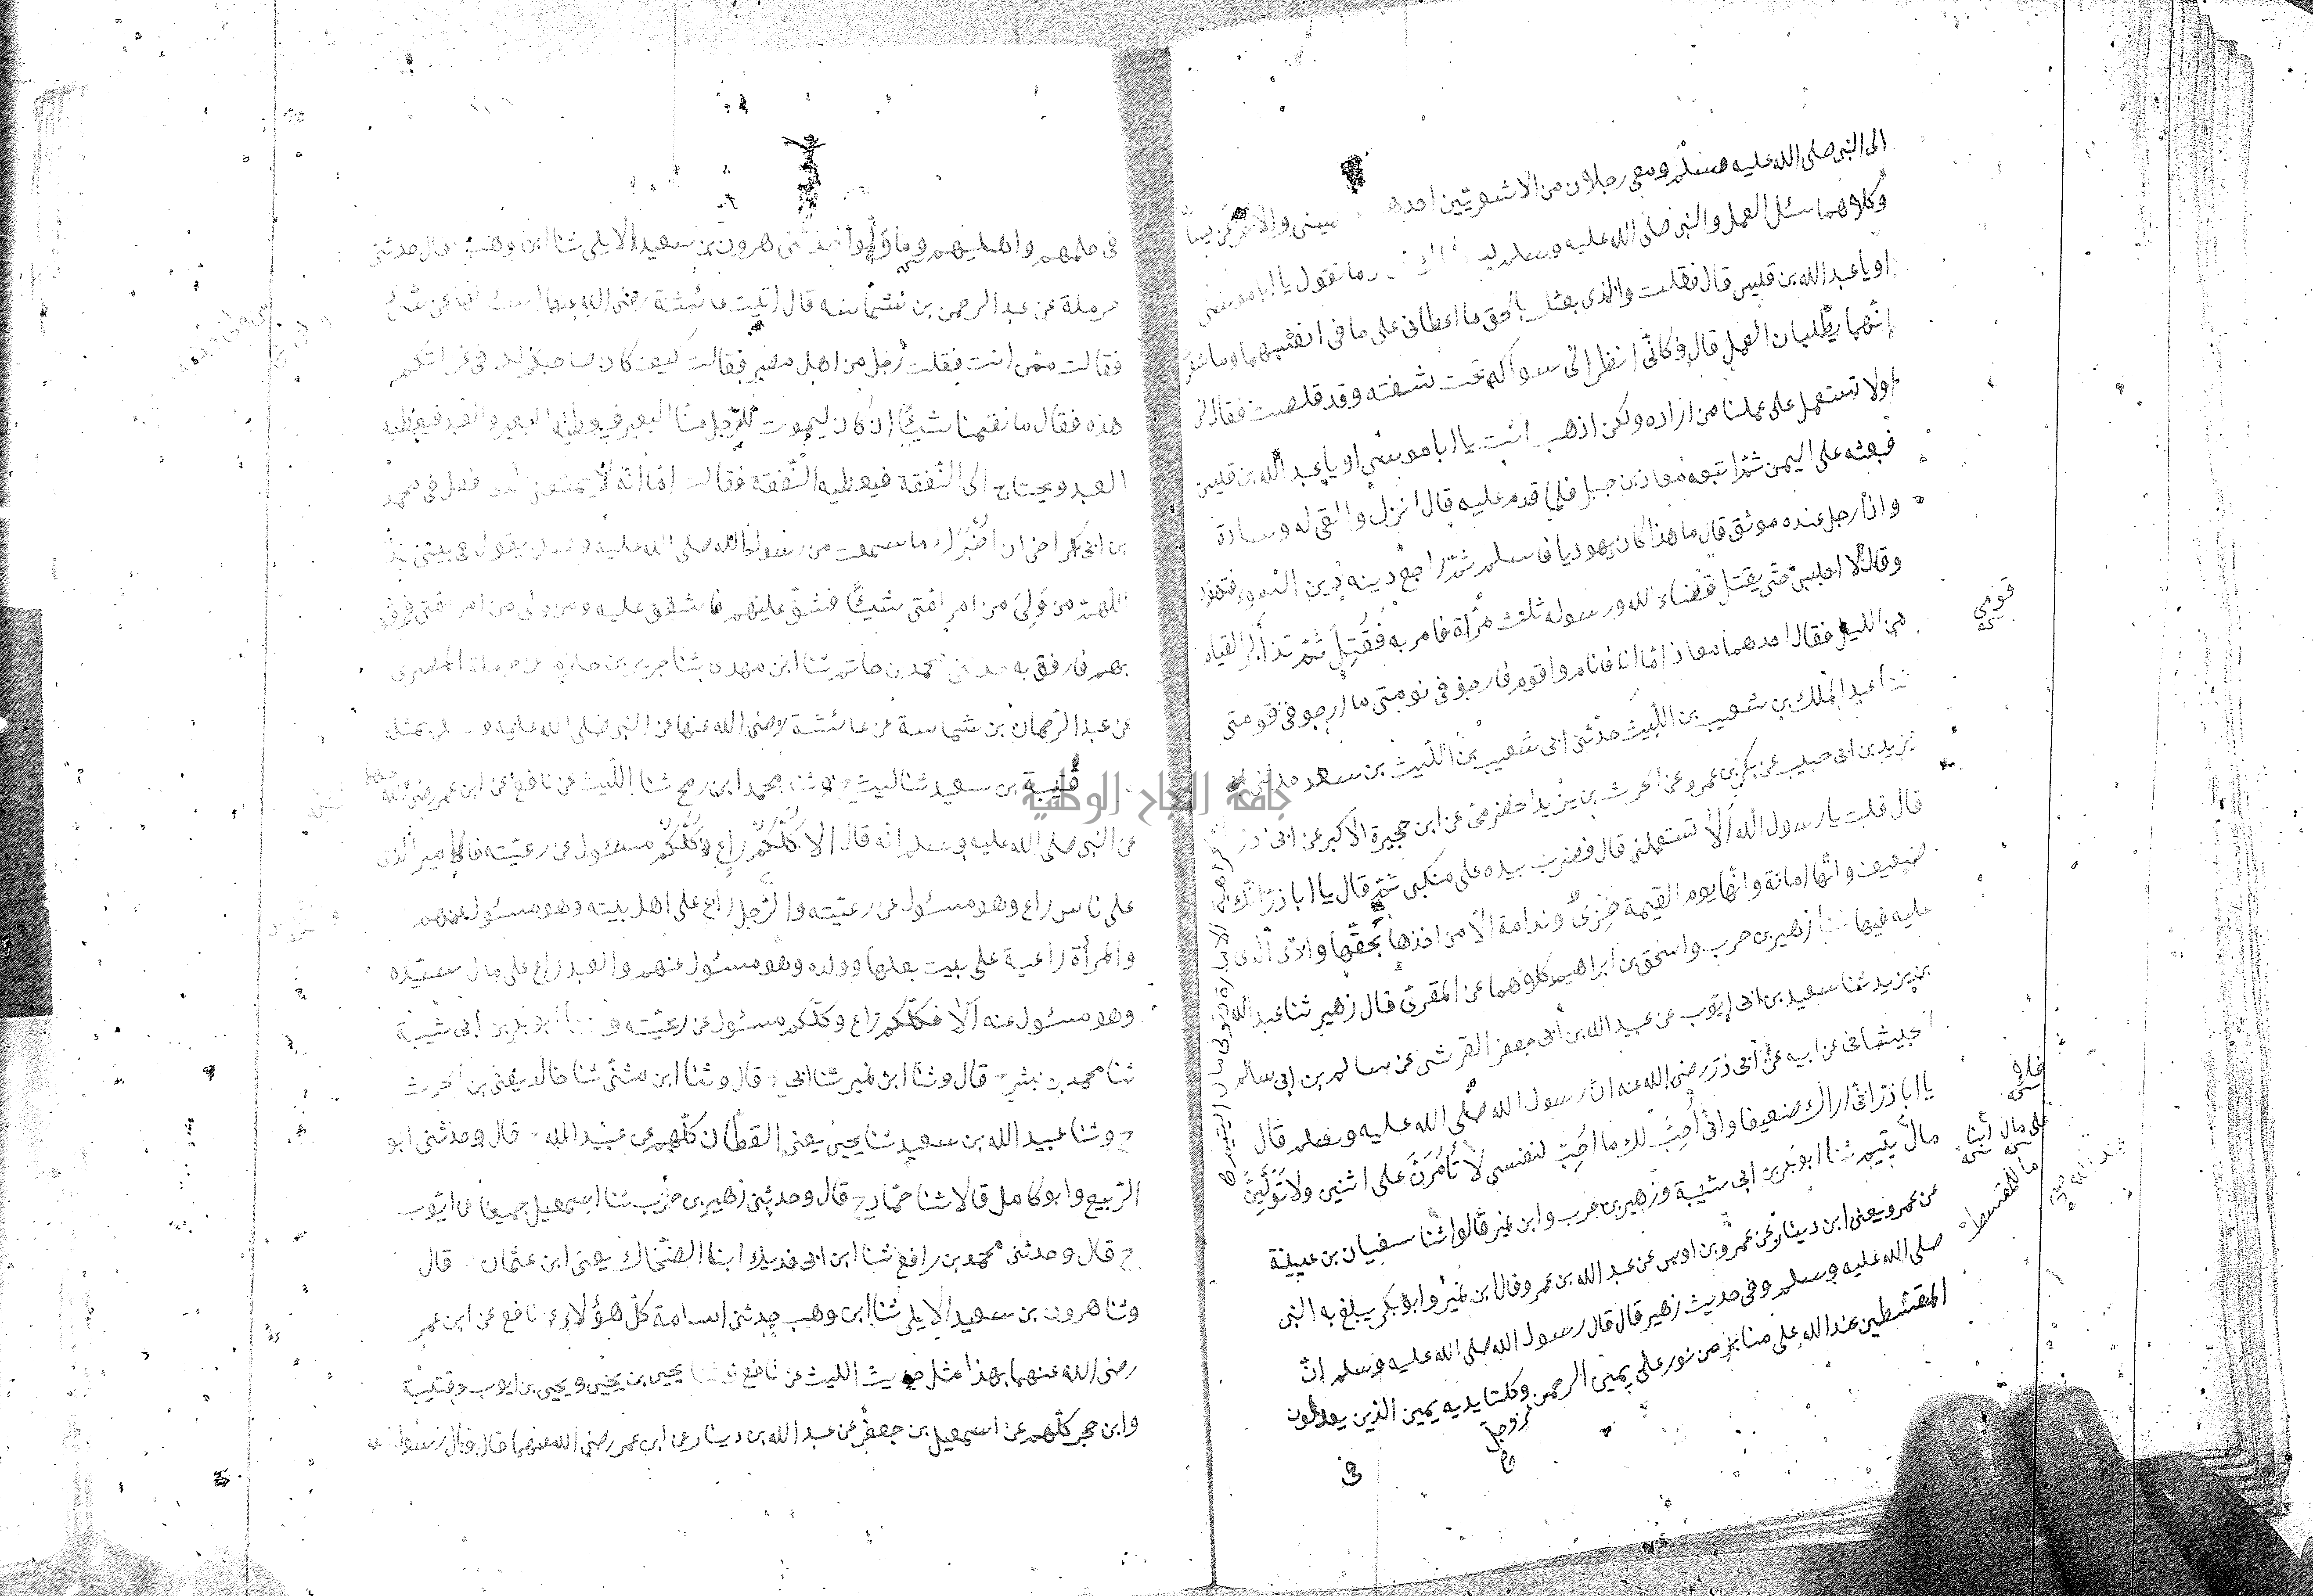 الى النبى صلى الله عليه وسلم ومعى رجلان من الاشعريين احدهما يمينى والآخر عن يسا
وكلاهما سئل العمل والنبى صلى الله عليه وسلم ما تقول يا ابا موسى
او يا عبد الله بن قيس قال فقلت والذى بعثك بالحق ما اعطانى على ما فى انفسهما وما شعر
انهما يطلبان العمل قال وكأنى انظر الى سواكه تحت شفته وقد قلصت فقال لن
اولا نستعمل على عملنا من اراده ولكن اذهب انت يا ابا موسى او يا عبد الله بن قيس
فبعثه على اليمن ثم اتبعه معاذ بن جبل فلما قدم عليه قال انزل والقى له وسادة
واذا رجل عنده موثق قال ما هذا كان يهوديا فاسلم ثم راجع دينه دين السوء فتهود
وقال لا اجلس حتى يقتل قضاء الله ورسوله ثلث مرأة فامر به فقتل ثم تذاكر القيام
من الليل فقال احدهما معاذ اما انا فانام واقوم فارجو فى نومتى ما ارجو فى قومتى
ثنا عبد الملك بن شعيب بن الليث حدثنى ابى شعيب بن الليث بن سعد حدثنى
يزيد بن ابى حبيب عن بكر بن عمرو عن الحرث بن يزيد الحضرمى عن ابن حجيرة الاكبر عن ابى ذر
قال قلت يا رسول الله الا تستعملنى قال فضرب بيده على منكبى ثم قال يا ابا ذر انك
ضعيف وانها امانة وانها يوم القيمة خزى وندامة الا من اخذها بحقها وادى الذى
عليه فيها ثنا زهير بن حرب واسحق بن ابراهيم كلاهما عن المقرئ قال زهير ثنا عبد الله
بن يزيد ثنا سعيد بن ابى ايوب عن عبيد الله بن ابى جعفر القرشى عن سالم بن ابى سالم
الجيشانى عن ابيه عن ابى ذر رضى الله عنه ان رسول الله صلى الله عليه وسلم قال
يا ابا ذر انى اراك ضعيفا وانى احب لك ما احب لنفسى لا تأمرن على اثنين ولا تولين
مال يتيم ثنا ابو بكر بن ابى شيبة وزهير بن حرب وابن نمير قالوا ثنا سفيان بن عيينة
عن عمرو يعنى ابن دينار عن عمرو بن اوس عن عبد الله بن عمرو قال ابن نمير وابو بكر يبلغ به النبى
صلى الله عليه وسلم وفى حديث زهير قال قال رسول الله صلى الله عليه وسلم ان
المقسطين عند الله على منابر من نور على يمين الرحمن وكلتا يديه يمين الذين يعدلون
عز وجل
فى
قومى
على مال
فى حكمهم واهليهم وما ولوا حدثنى هرون بن سعيد الايلى ثنا ابن وهب قال حدثنى
حرملة عن عبد الرحمن بن شماسه قال اتيت عائشة رضى الله عنها اسئلها عن شئ
فقالت ممن انت فقلت رجل من اهل مصر فقالت كيف كان صاحبكم لكم فى غزاتكم
هذه فقال ما نقمنا شيئا ان كان ليموت للرجل منا البعير فيعطيه البعير والعبد فيعطيه
العبد ويحتاج الى النفقة فيعطيه النفقة فقالت اما انه لا يمنعنى الذى فعل فى محمد
بن ابى بكر اخى ان اخبرك ما سمعت من رسول الله صلى الله عليه وسلم يقول فى بيتى هذا
اللهم من ولى من امر امتى شيئا فشق عليهم فاشقق عليه ومن ولى من امر امتى فرفق
بهم فارفق به حدثنى محمد بن حاتم ثنا ابن مهدى ثنا جرير بن حازم عن حرملة المصرى
عن عبد الرحمان بن شماسة عن عائشة رضى الله عنها عن النبى صلى الله عليه وسلم بمثله
قتيبة بن سعيد ثنا ليث ح وثنا محمد ابن رمح ثنا الليث عن نافع عن ابن عمر رضى الله عنهما
عن النبى صلى الله عليه وسلم انه قال الا كلكم راع وكلكم مسئول عن رعيته فالامير الذى
على ناس راع وهو مسئول عن رعيته والرجل راع على اهل بيته وهو مسئول عنهم
والمرأة راعية على بيت بعلها وولده وهو مسئول عنهم والعبد راع على مال سيده
وهو مسئول عنه الا فكلكم راع وكلكم مسئول عن رعيته وثنا ابو بكر بن ابى شيبة
ثنا محمد بن بشر ح قال وثنا ابن نمير ثنا ابى ح قال وثنا ابن مثنى ثنا خالد يعنى بن الحرث
ح وثنا عبيد الله بن سعيد ثنا يحيى يعنى القطان كلهم عن عبيد الله ح قال وحدثنى ابو
الربيع وابو كامل قالا ثنا حماد ح قال وحدثنى زهير بن حرب ثنا اسمعيل جميعا عن ايوب
ح قال وحدثنى محمد بن رافع ثنا ابن ابى فديك ابنا الضحاك يعنى ابن عثمان ح قال
وثنا هرون بن سعيد الايلى ثنا ابن وهب حدثنى اسامة كل هؤلاء عن نافع عن ابن عمر
رضى الله عنهما بهذا مثل حديث الليث عن نافع وثنا يحيى بن يحيى ويحيى بن ايوب وقتيبة
وابن حجر كلهم عن اسمعيل بن جعفر عن عبد الله بن دينار عن ابن عمر رضى الله عنهما قال قال رسول الله
جامعة النجاح الوطنية